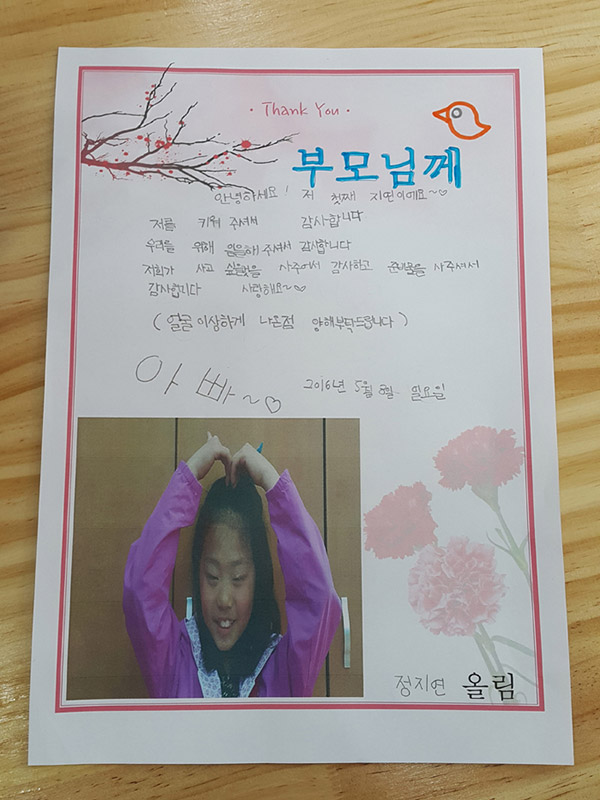 · Thank You ·
부모님께
안녕하세요! 저 첫째 지연이에요~♡
저를 키워 주셔서 감사합니다
우리를 위해 일을해 주셔서 감사합니다
저희가 사고 싶은것을 사주어서 감사하고 준비물을 사주셔서
감사합니다 사랑해요~♡
(얼굴 이상하게 나온점 양해부탁드립니다)
아빠~♡ 2016년 5월 8일 일요일
정지연 올림